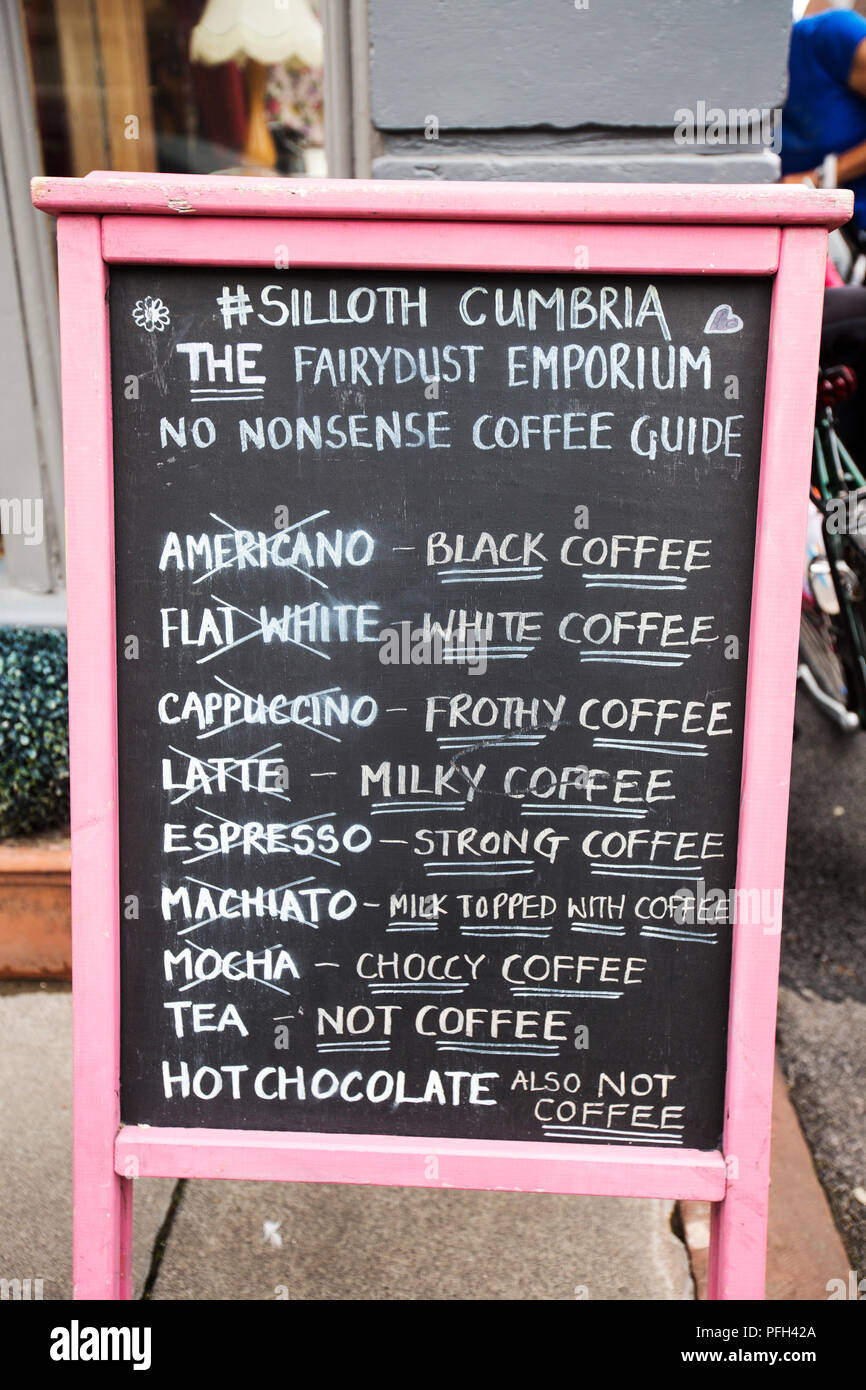 #SILLOTH CUMBRIA
THE FAIRYDUST EMPORIUM
NO NONSENSE COFFEE GUIDE
AMERICANO - BLACK COFFEE
FLAT WHITE - WHITE COFFEE
CAPPUCCINO - FROTHY COFFEE
LATTE - MILKY COFFEE
ESPRESSO - STRONG COFFEE
MACHIATO - MILK TOPPED WITH COFFEE
MOCHA - CHOCCY COFFEE
TEA - NOT COFFEE
HOT CHOCOLATE ALSO NOT
COFFEE
a alamy stock photo
PFH42A
www.alamy.com